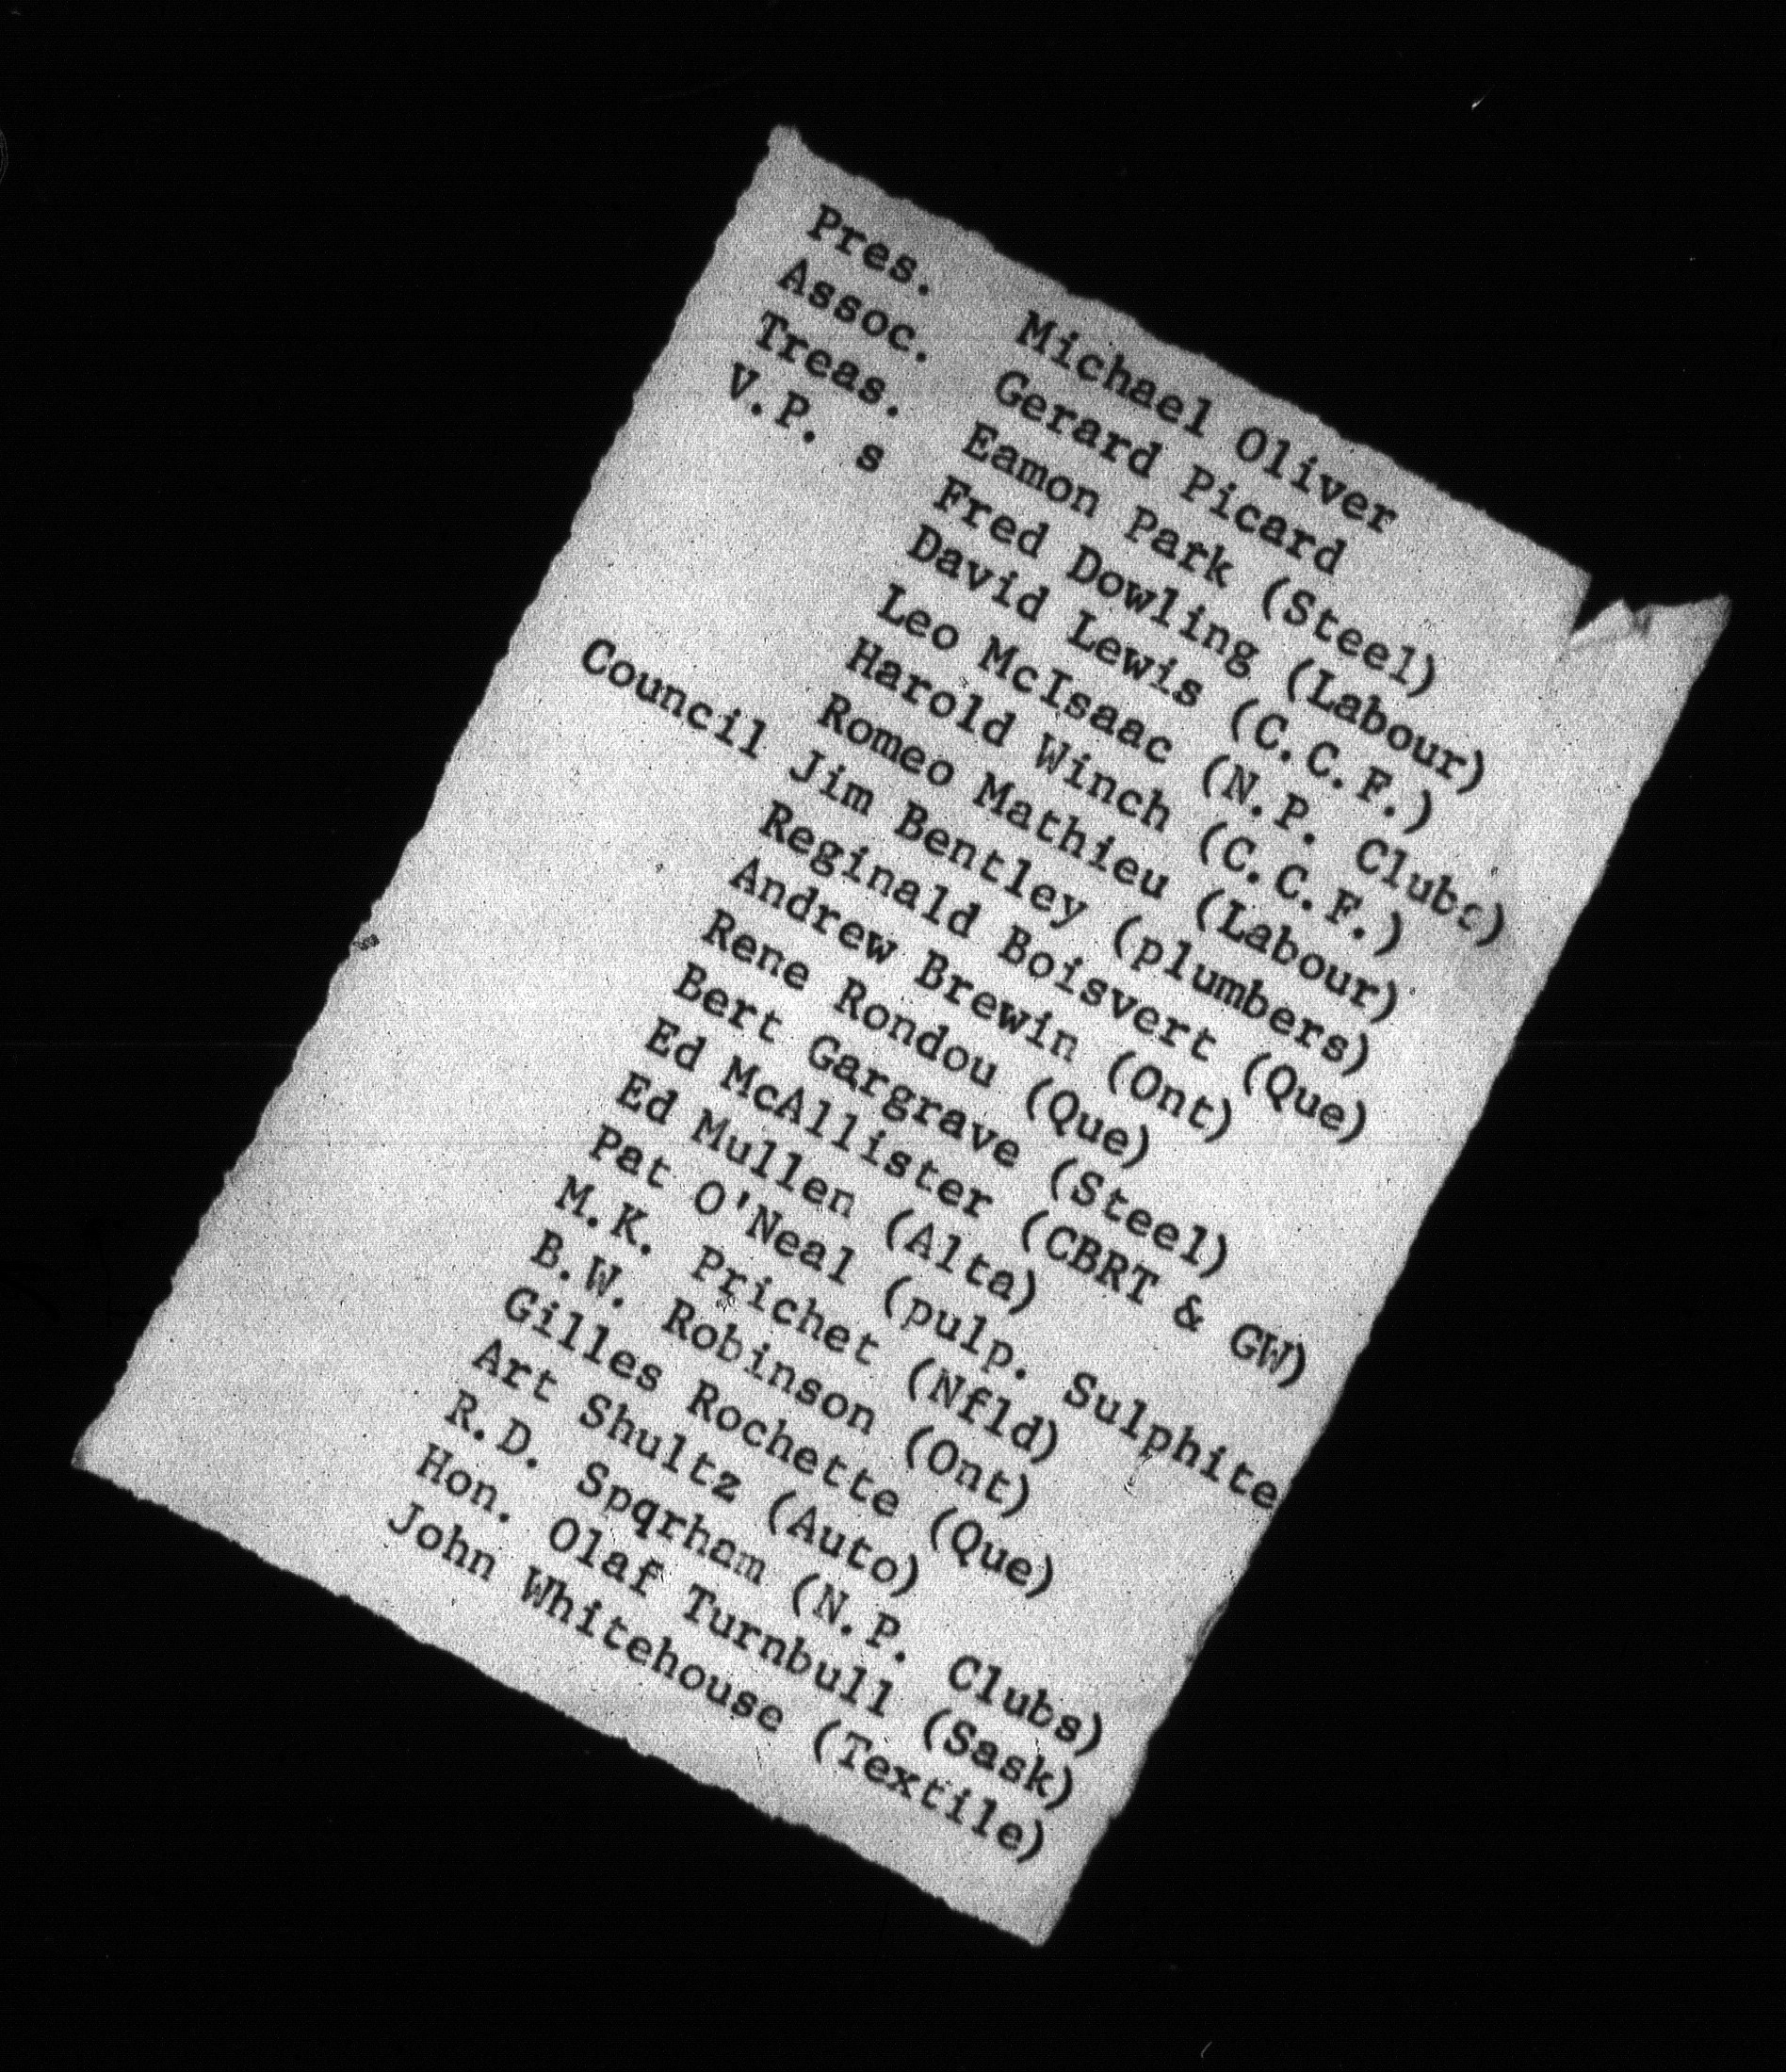 Pres. Michael Oliver
Assoc. Gerard Picard
Treas. Eamon Park (Steel)
V.P. s Fred Dowling (Labour)
David Lewis (C.C.F.)
Leo McIsaac (N.P. Clubs)
Harold Winch (C.C.F.)
Romeo Mathieu (Labour)
Council Jim Bentley (plumbers)
Reginald Boisvert (Que)
Andrew Brewin (Ont)
Rene Rondou (Que)
Bert Gargrave (Steel)
Ed McAllister (CBRT & GW)
Ed Mullen (Alta)
Pat O'Neal (pulp. Sulphite
M.K. Prichet (Nfld)
B.W. Robinson (Ont)
Gilles Rochette (Que)
Art Shultz (Auto)
R.D. Spqrham (N.P. Clubs)
Hon. Olaf Turnbull (Sask)
John Whitehouse (Textile)